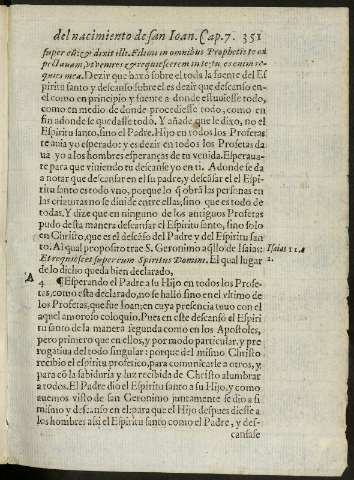 del nacimiento de san Ioan. Cap. 7. 351
super eũ; & dixit illi. Fili mi in omnibus Prophetis te ex
pectauam, vt venires & requiescerem in te: tu es enim re-
quies mea. Dezir que baxò sobre el toda la fuente del Es
piritu santo y descanso sobre el es dezir que descanso en-
el como en principio y fuente a donde estuuiesse todo,
como en medio de donde procediesse todo, como en
fin adonde se quedasse todo. Y añade que le dixo, no el
Espiritu santo, sino el Padre. Hijo en todos los Profetas
te auia yo esperado: y es dezir en todos los Profetas da
ua yo a los hombres esperanças de tu venida. Esperaua-
te para que viniendo tu descanse yo en ti. Adonde se da
a notar que descansar en el su padre, y descãsar el el Espi
ritu santo es todo vno, porque lo q̃ obrã las personas en
las criaturas no se diuide entre ellas, sino que es todo de
todas. Y dize que en ninguno de los antiguos Profetas
pudo desta manera descansar el Espiritu santo, sino solo
en Christo, que es el descãso del Padre y del Espiritu san
to. Al qual proposito trae S. Geronimo aq̃llo de Isaias:
Isaias 11. a
Et requiescet super eum Spiritus Domini. El qual lugar
2.
de lo dicho queda bien declarado,
A
4 ¶ Esperando el Padre a su Hijo en todos los Profe-
tas, como esta declarado, no se hallò sino en el vltimo de
los Profetas, que fue Ioan; en cuya presencia tuuo con el
aquel amoroso coloquio. Pues en este descansò el Espiri
tu santo de la manera segunda como en los Apostoles,
pero primero que en ellos, y por modo particular, y pre
rogatiua del todo singular: porque del mismo Christo
recibio el espiritu profetico, para comunicarle a otros, y
para cõ la sabiduria y luz recibida de Christo alumbrar
a todos. El Padre dio el Espiritu santo a su Hijo, y como
auemos visto de san Geronimo juntamente se dio a si
mismo y descanso en el: para que el Hijo despues diesse a
los hombres assi el Espiritu santo como el Padre, y des-
cansase